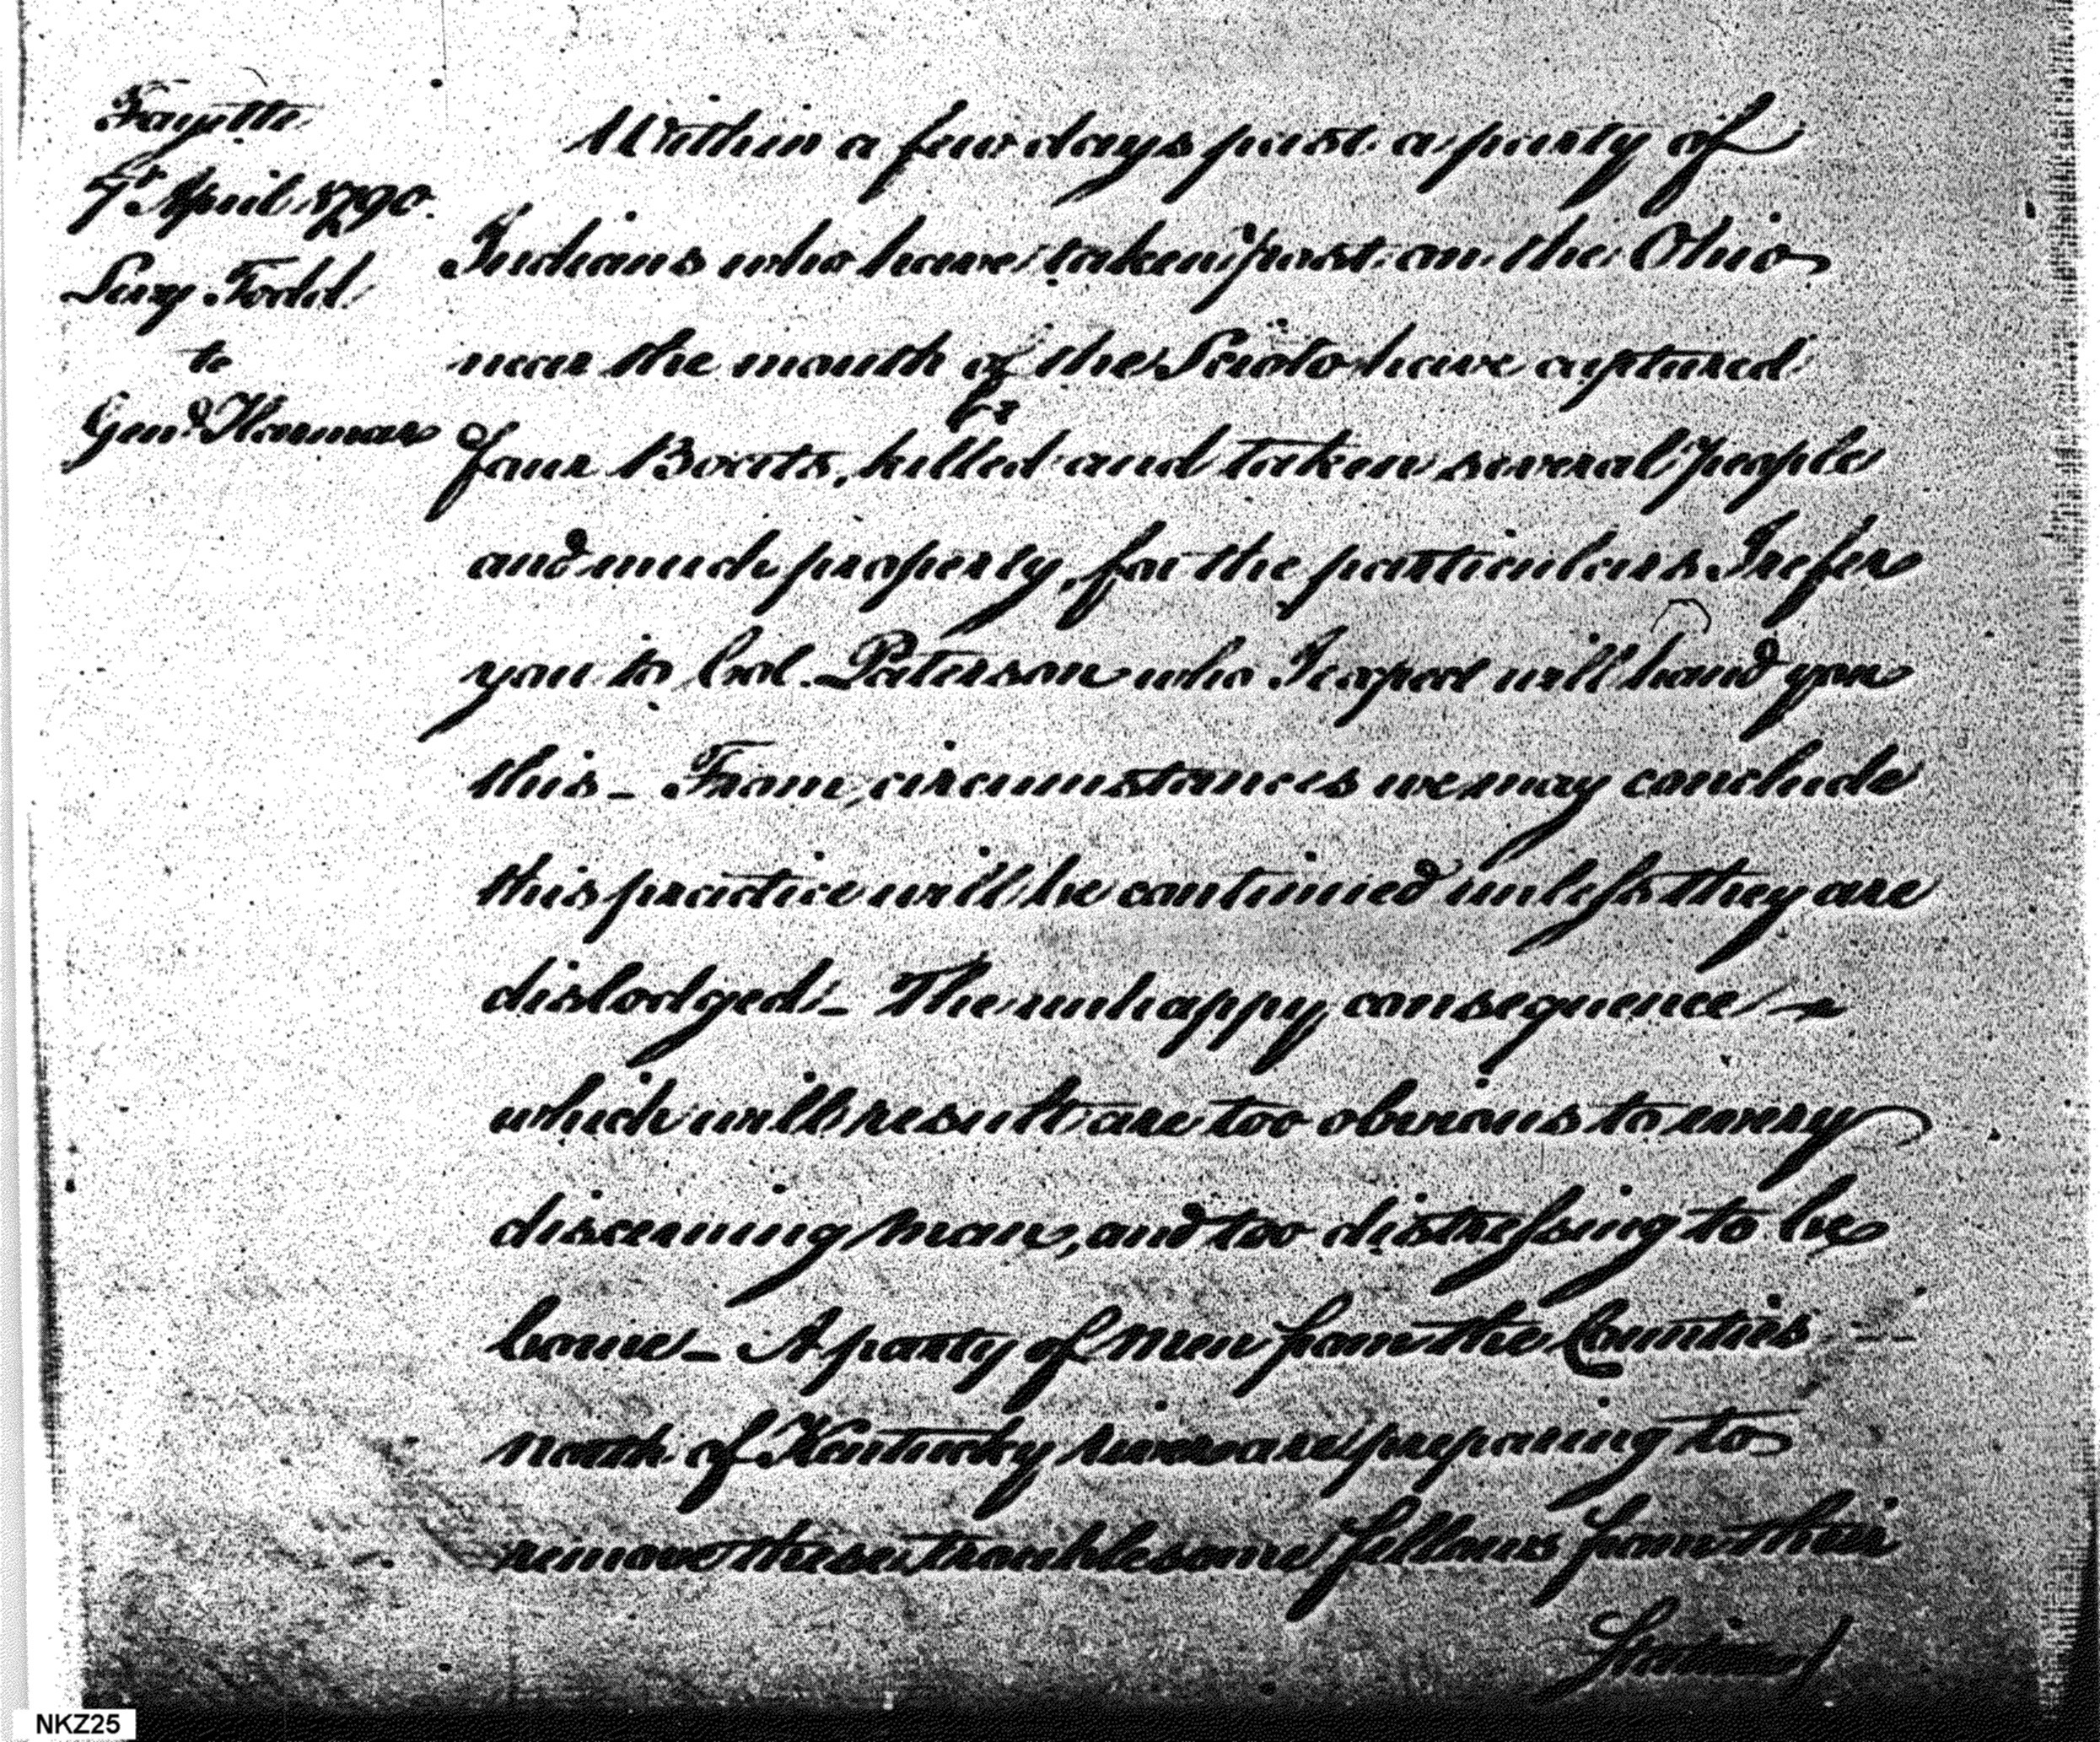 Fayette
7th April 1790.
Levy Todd
to
Genl. Harmar
Within a few days past a party of
Indians who have taken post on the Ohio
near the mouth of the Scioto have captured
four Boats, killed and taken several people
and much property, for the particulars I refer
you to Col. Paterson who I expect will hand you
this – From circumstances we may conclude
this practice will be continued unless they are
dislodged – The unhappy consequence
which will result are too obvious to every
discerning man, and too distressing to be
borne – A party of Men from the Counties
north of Kentucky river are preparing to
remove these troublesome fellows from their
Station
NKZ25